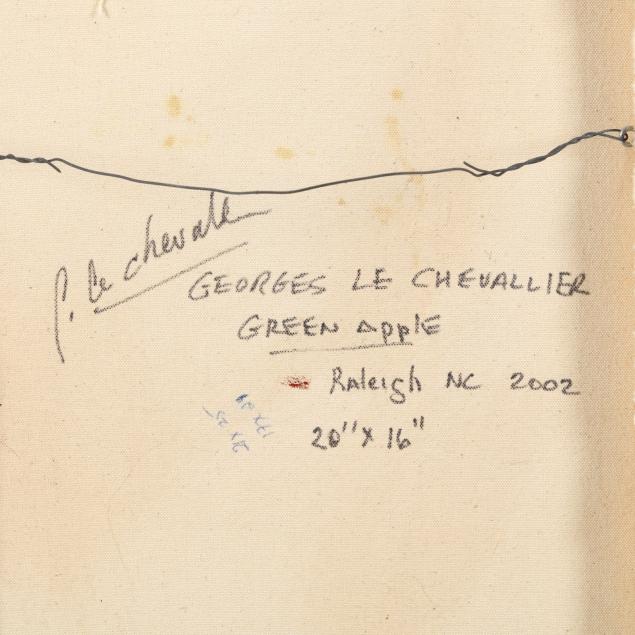 G. Le Chevalle
GEORGES LE CHEVALLIER
GREEN APPlE
Raleigh NC 2002
20" X 16"